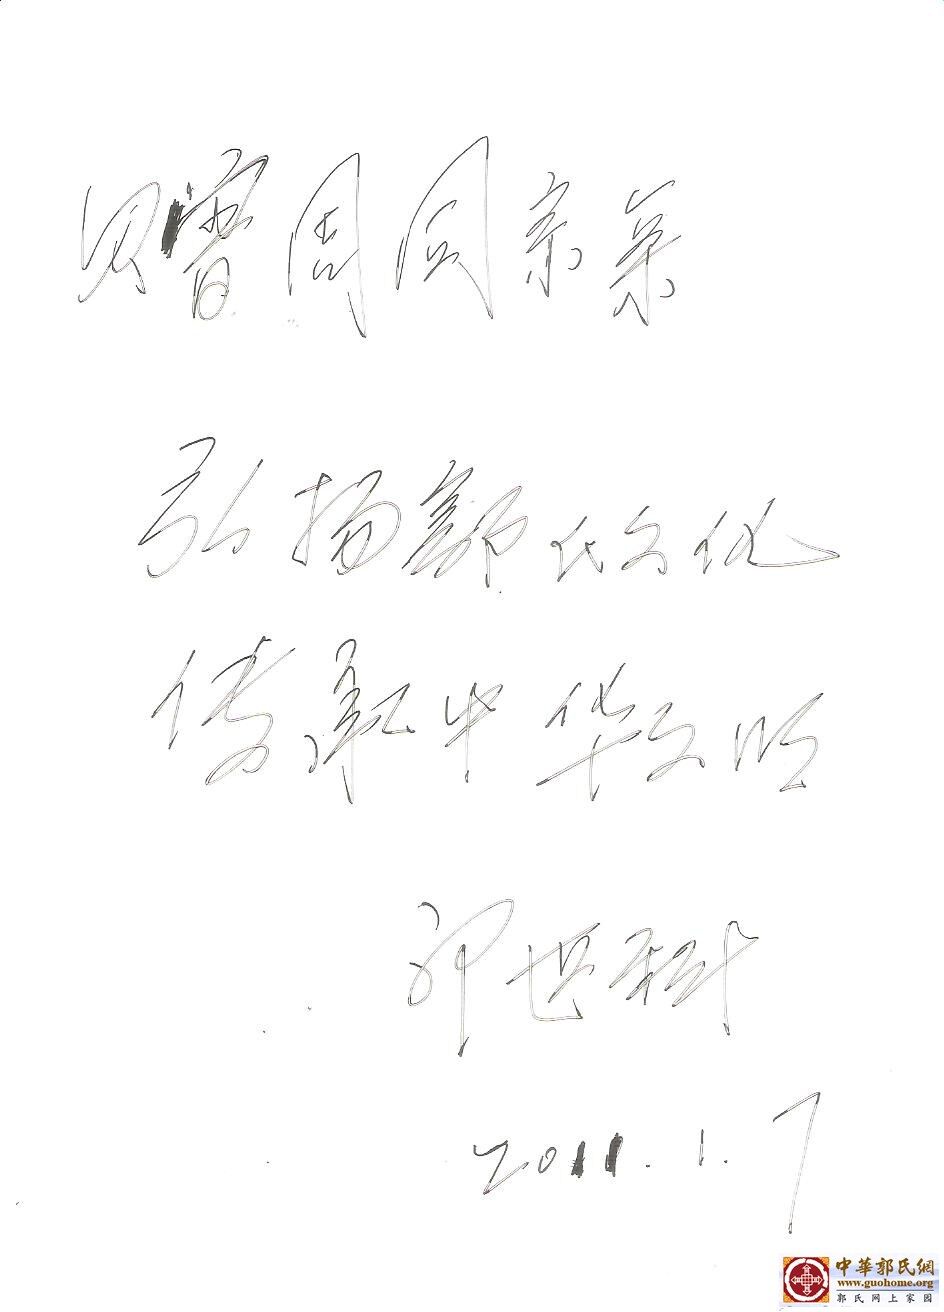 赠周国宗亲
弘扬郭氏文化
传承中华文明
邵世科
2011.1.7
中華郭氏網
www.guohome.org
郭氏网上家园